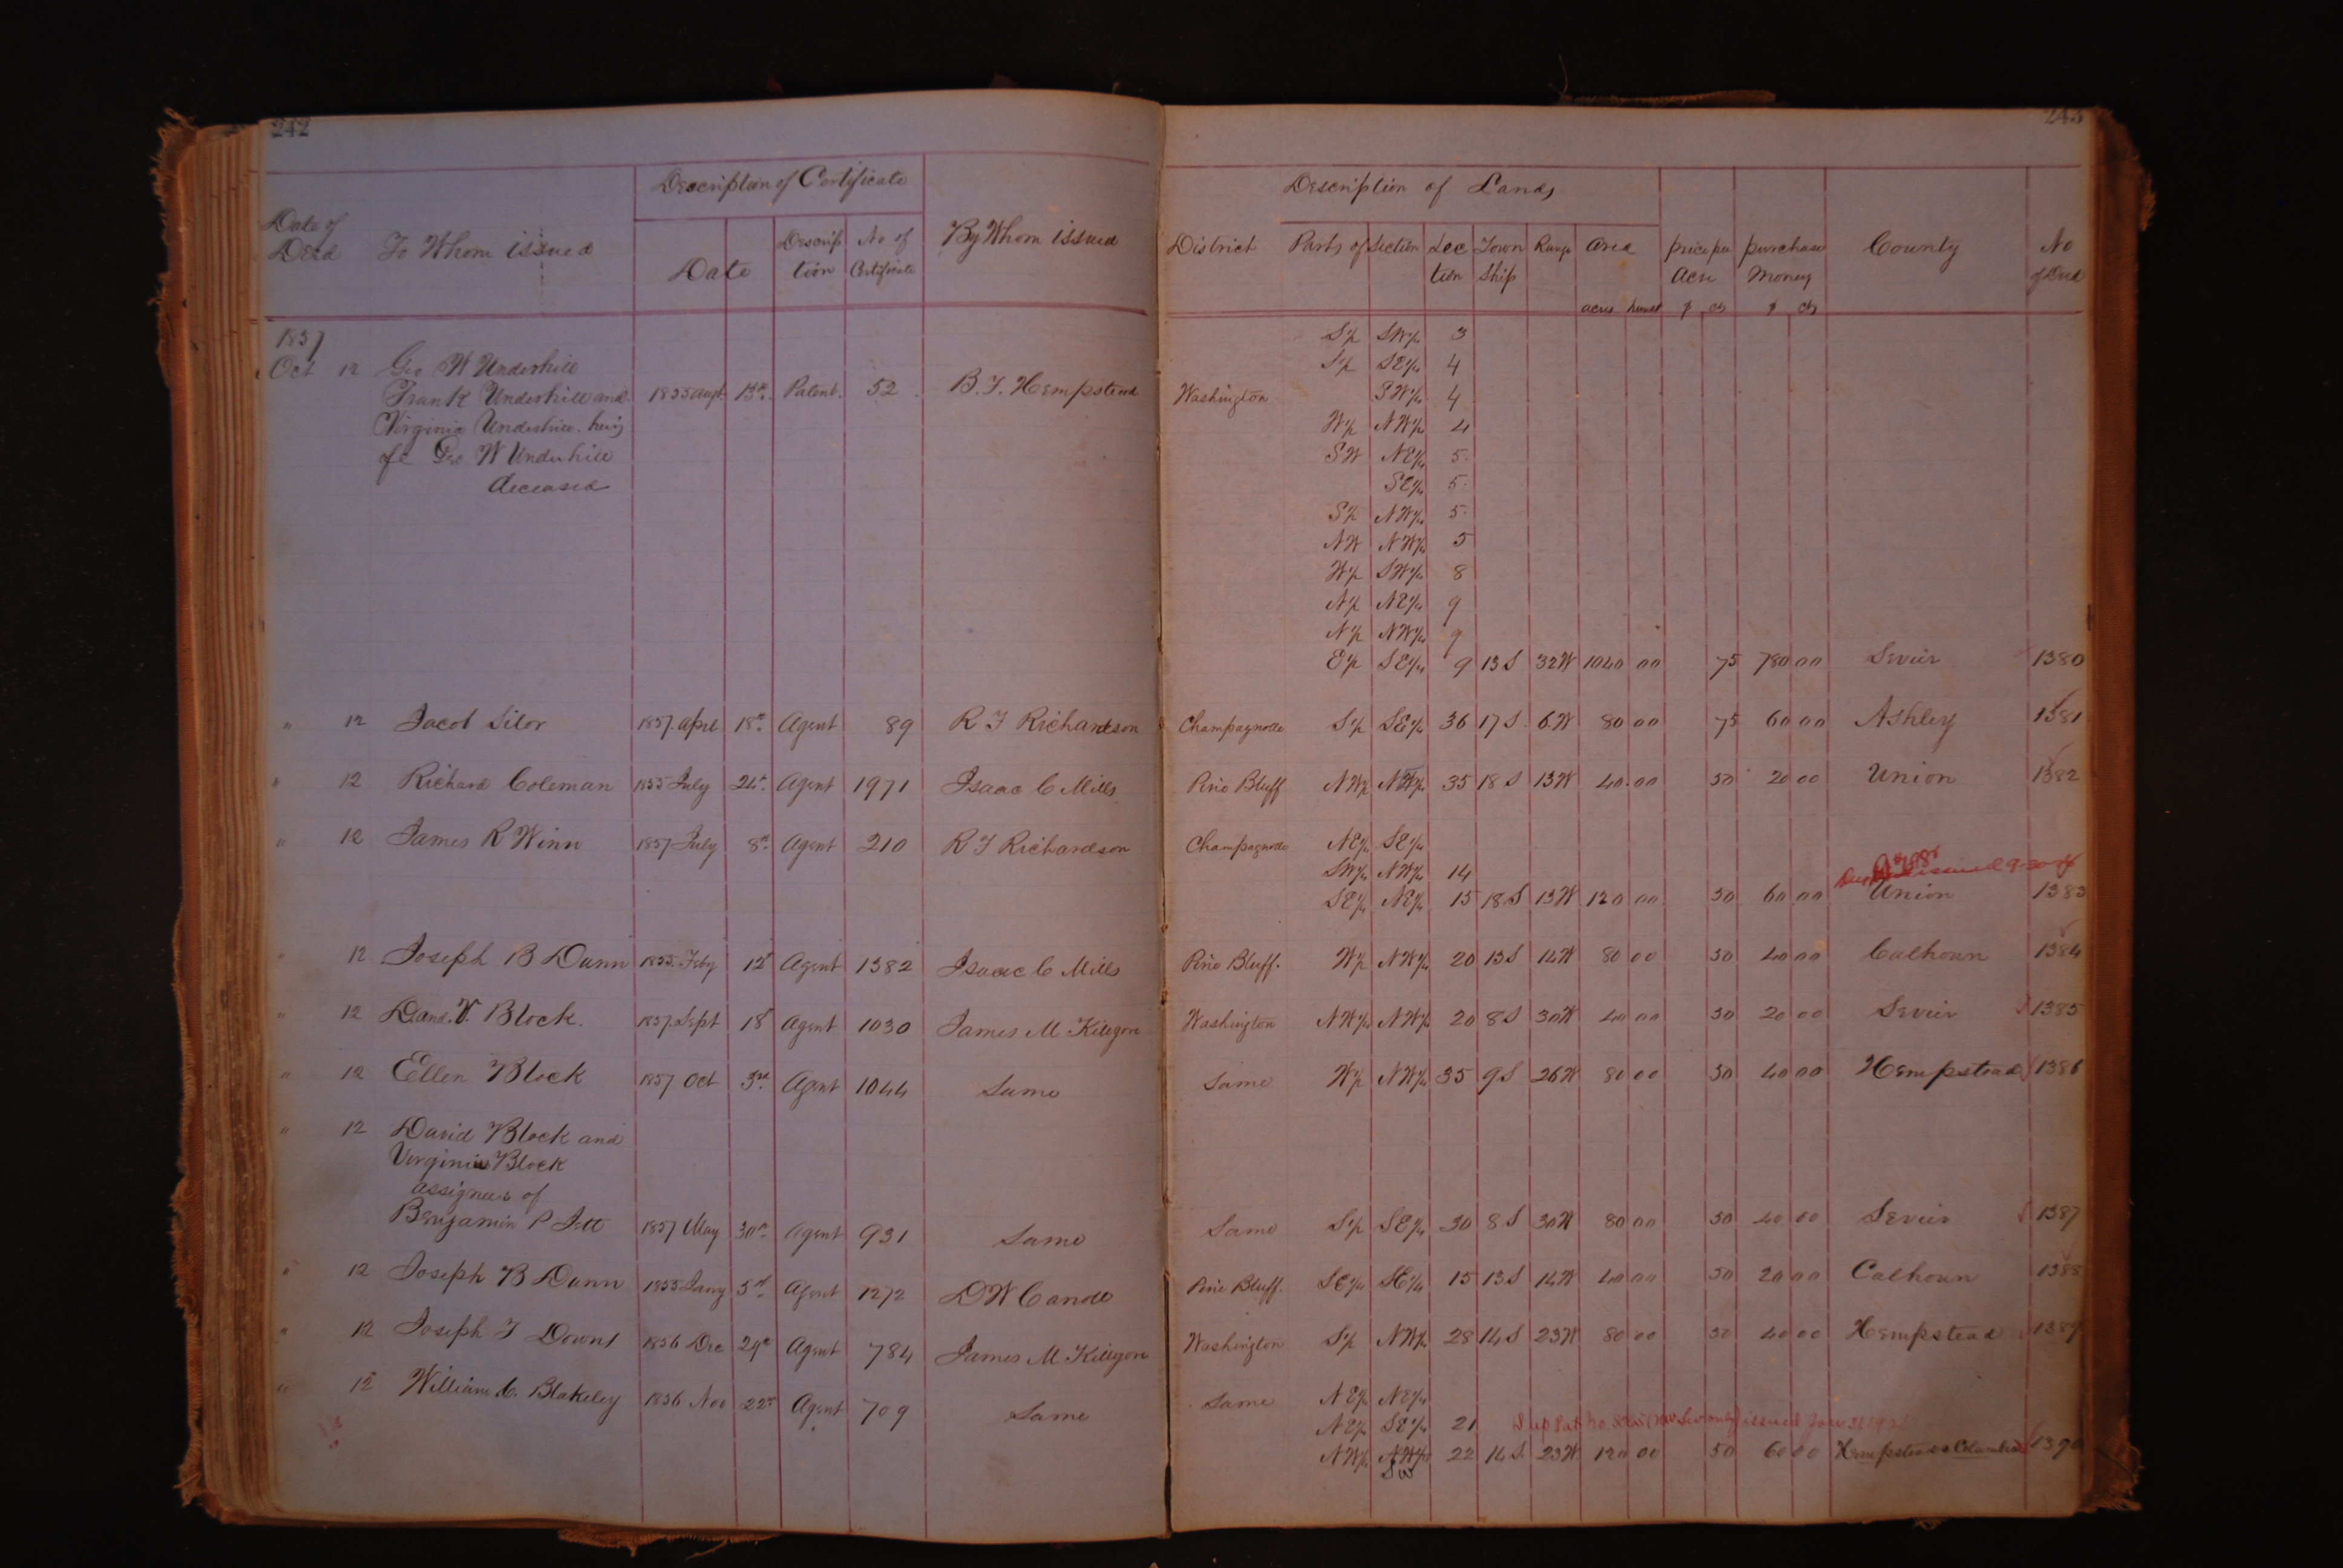 242
Description of Certificate
Date of Deed To Whom issued Date Description No of Certificate By Whom issued
1857
Oct 12 Geo W Underhill
Frank Underhill and 1855 augt 13th Patent. 52 B. F. Hempstead
Virginia Underhill heirs
of Geo W Underhill
deceased
" 12 Jacob Silor 1857 april 18th Agent 89 R F Richardson
" 12 Richard Coleman 1855 July 24th Agent 1971 Isaac C Mills
" 12 James R Winn 1857 July 8th Agent 210 R F Richardson
" 12 Joseph B Dunn 1855 Feby 12th Agent 1382 Isaac C Mills
" 12 V. Block. 1857 Sept 18th Agent 1030 James M Kilgore
" 12 Ellen Block 1857 Oct 3rd Agent 1044 Same
" 12 David Block and
Virginius Block
assignees of
Benjamin P Jett 1857 May 30th Agent 931 Same
" 12 Joseph B Dunn 1855 Jany 5th Agent 1272 D W
" 12 Joseph T Downs 1856 Dec 29th Agent 784 James M Kilgore
" 12 William C. Blakeley 1856 Nov 22nd Agent 709 Same
243
Description of Lands
District Parts of Section Section Township Range Area price per Acre purchase Money County No of Deed
acres hundt $ cts $ cts
S½ SW¼ 3
S½ SE¼ 4
Washington SW¼ 4
W½ NW¼ 4
SW NE¼ 5
SE¼ 5
S½ NW¼ 5
NW NW¼ 5
W½ SW¼ 8
N½ NE¼ 9
N½ NW¼ 9
E½ SE¼ 9 13S 32W 1040 00 75 780 00 Sevier 1380
Champagnole S½ SE¼ 36 17S 6W 80 00 75 60 00 Ashley 1381
Pine Bluff NW¼ 35 18S 13W 40 00 50 20 00 Union 1382
Champagnole NE¼ SE¼
SW¼ NW¼ 14
issued
SE¼ NE¼ 15 18S 13W 120 00 50 60 00 Union 1383
Pine Bluff. W½ NW¼ 20 13S 14W 80 00 50 40 00 Calhoun 1384
Washington NW¼ NW¼ 20 8S 30W 40 00 50 20 00 Sevier 1385
Same W½ NW¼ 35 9S 26W 80 00 50 40 00 Hempstead 1386
Same S½ SE¼ 30 8S 30W 80 00 50 40 00 Sevier 1387
Pine Bluff. SE¼ SE¼ 15 13S 14W 40 00 50 20 00 Calhoun 1388
Washington S½ NW¼ 28 14S 23W 80 00 50 40 00 Hempstead 1389
Same NE¼ NE¼
NE¼ SE¼ 21 Dup Pat No. issued
NW¼ NW¼ 22 14S 23W 120 00 50 60 00 Hempstead & Columbia 1390
SW